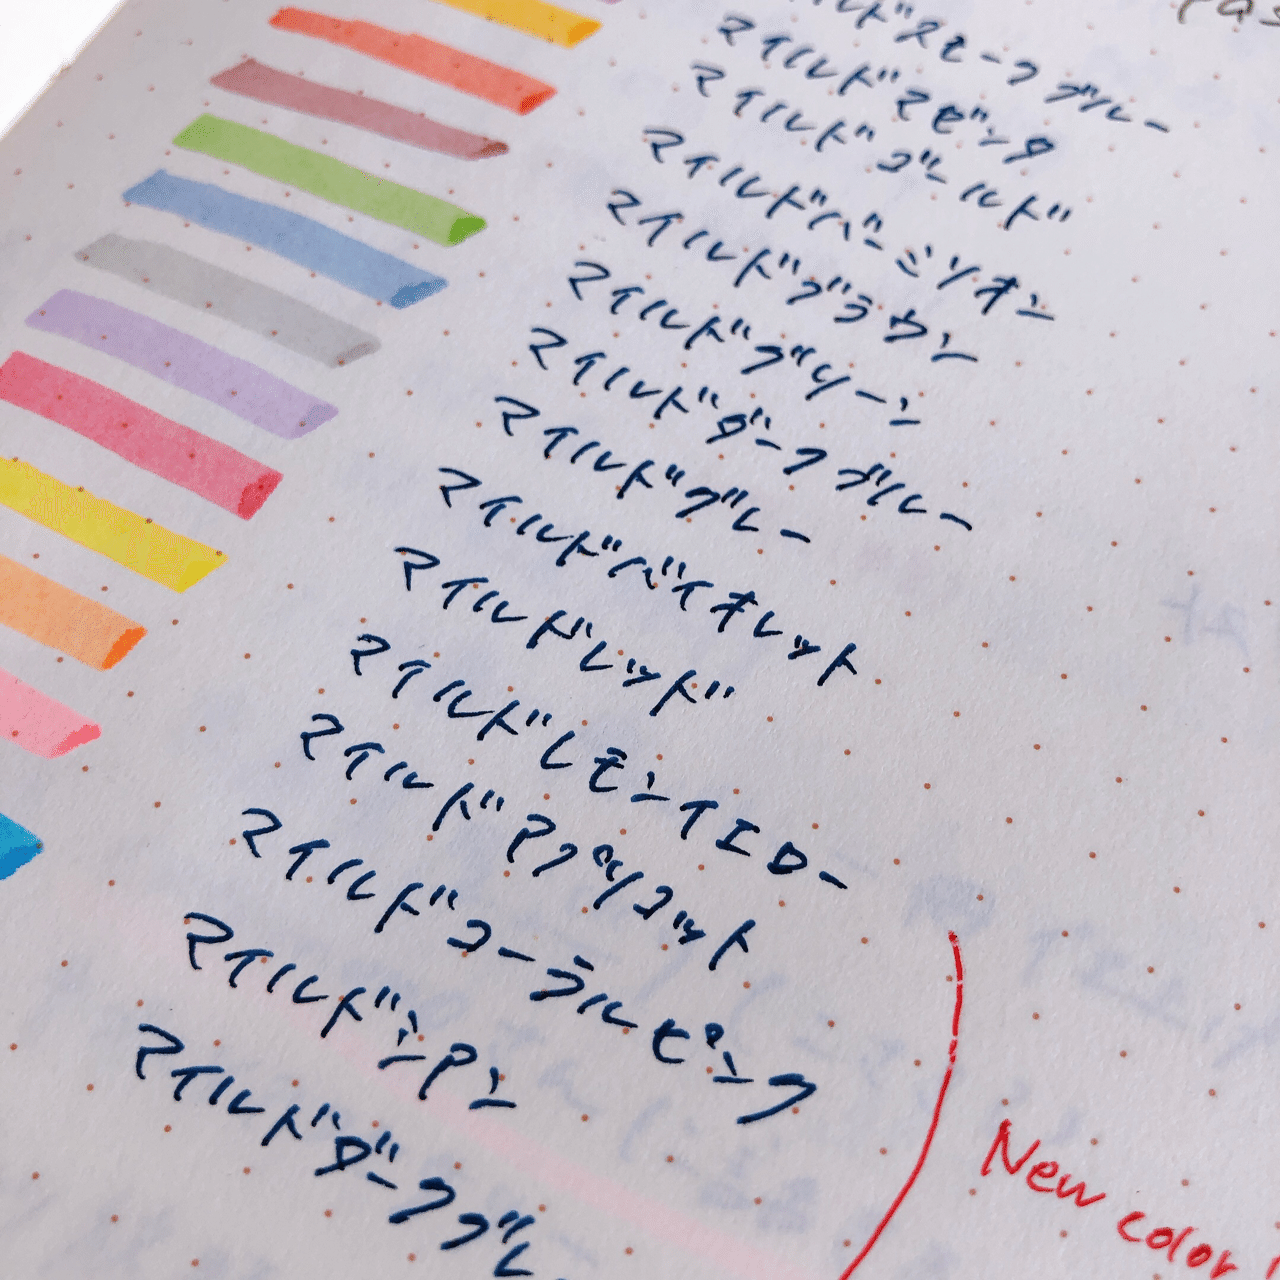 ルドスモークブルー
マイルドマゼンタ
マイルドゴールド
マイルドバーミリオン
マイルドブラウン
マイルドグリーン
マイルドダークブルー
マイルドグレー
マイルドバイオレット
マイルドレッド
マイルドレモンイエロー
マイルドアプリコット
マイルドコーラルピンク
マイルドシアン
マイルドダークグレ
New color